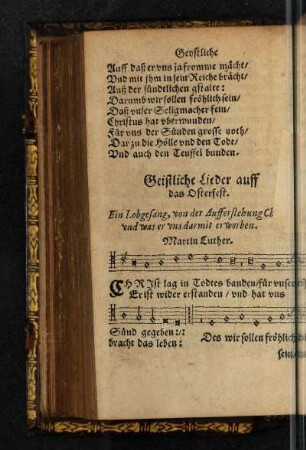 Geystliche
Auff daß er vns ja fromme mächt/
Vnd mit jhm in sein Reiche brächt/
Auß der sündtlichen gstalte:
Darumb wir sollen fröhlich sein/
Daß vnser Seligmacher fein/
Christus hat vberwunden/
Für vns der Sünden grosse noth/
Darzu die Hölle vnd den Todt/
Vnd auch den Teuffel bunden.
Geistliche Lieder auff
das Osterfest.
Ein Lobgesang, von der Aufferstehung
vnd was er vns darmit erworben.
Martin Luther.
CHRIst lag in Todtes banden/für vnser
Er ist wider erstanden/ vnd hat vns
Sünd gegeben:/:
Des wir sollen fröhlich
bracht das leben:
sein/